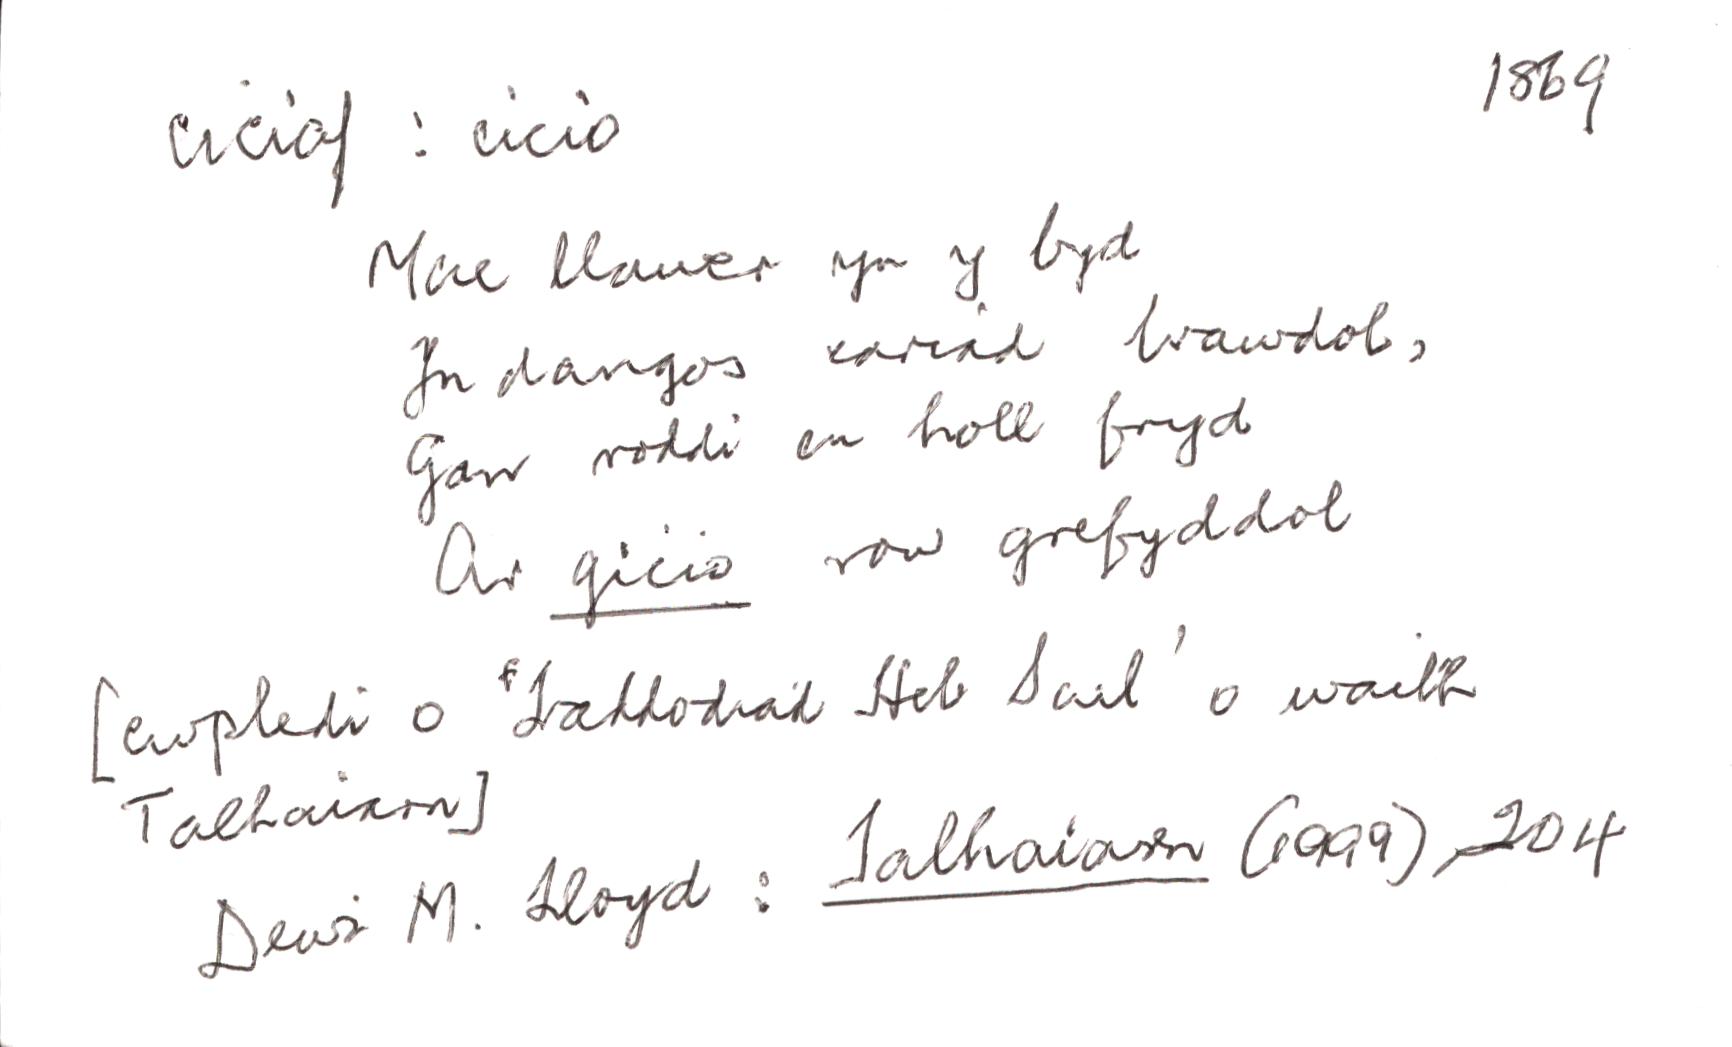 1869
ciciaf : cicio
Mae llawer yn y byd
Yn dangos cariad brawdol,
Gan roddi eu holl fryd
Ar gicio row grefyddol
[cwpledi o 'Traddodiad Heb Sail' o waith
Talhaiarn]
Dewi M. Lloyd : Talhaiarn (1999), 204